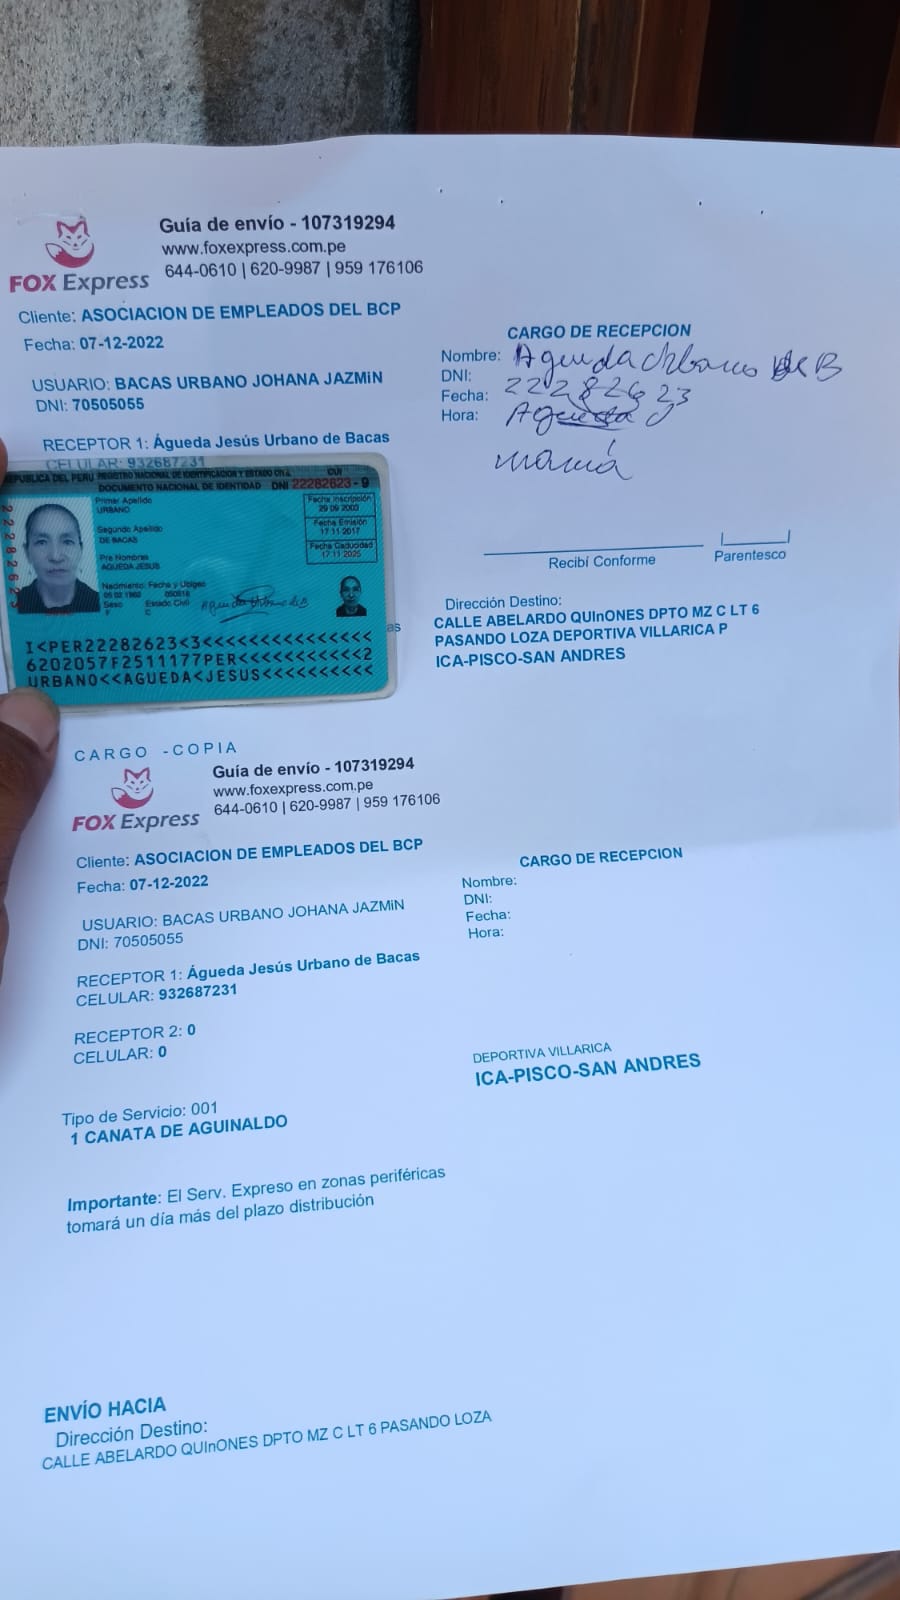 Guía de envío - 107319294
www.foxexpress.com.pe
644-0610 | 620-9987 | 959 176106
FOX Express
Cliente: ASOCIACION DE EMPLEADOS DEL BCP
Fecha: 07-12-2022
USUARIO: BACAS URBANO JOHANA JAZMiN
DNI: 70505055
RECEPTOR 1: Águeda Jesús Urbano de Bacas
CELULAR: 932687231
CARGO DE RECEPCION
Nombre: Agueda Urbano de B
DNI: 22282623
Fecha:
Hora: Agueda
mamá
Recibí Conforme
Parentesco
Dirección Destino:
CALLE ABELARDO QUInONES DPTO MZ C LT 6
PASANDO LOZA DEPORTIVA VILLARICA P
ICA-PISCO-SAN ANDRES
REPUBLICA DEL PERU REGISTRO NACIONAL DE IDENTIFICACION Y ESTADO CIVIL
CUI
DOCUMENTO NACIONAL DE IDENTIDAD DNI 22282623 - 9
Primer Apellido
URBANO
Segundo Apellido
DE BACAS
Pre Nombres
AGUEDA JESUS
Nacimiento: Fecha y Ubigeo
05 02 1962
Sexo Estado Civil
F C
Fecha Inscripción
29 09 2003
Fecha Emisión
17 11 2017
Fecha Caducidad
17 11 2025
22282623
as
I<PER22282623<3<<<<<<<<<<<<<<<
6202057F2511177PER<<<<<<<<<<<2
URBANO<<AGUEDA<JESUS<<<<<<<<<<
CARGO - COPIA
Guía de envío - 107319294
www.foxexpress.com.pe
644-0610 | 620-9987 | 959 176106
FOX Express
Cliente: ASOCIACION DE EMPLEADOS DEL BCP
Fecha: 07-12-2022
USUARIO: BACAS URBANO JOHANA JAZMiN
DNI: 70505055
RECEPTOR 1: Águeda Jesús Urbano de Bacas
CELULAR: 932687231
RECEPTOR 2: 0
CELULAR: 0
CARGO DE RECEPCION
Nombre:
DNI:
Fecha:
Hora:
DEPORTIVA VILLARICA
ICA-PISCO-SAN ANDRES
Tipo de Servicio: 001
1 CANATA DE AGUINALDO
Importante: El Serv. Expreso en zonas periféricas
tomará un día más del plazo distribución
ENVÍO HACIA
Dirección Destino:
CALLE ABELARDO QUInONES DPTO MZ C LT 6 PASANDO LOZA